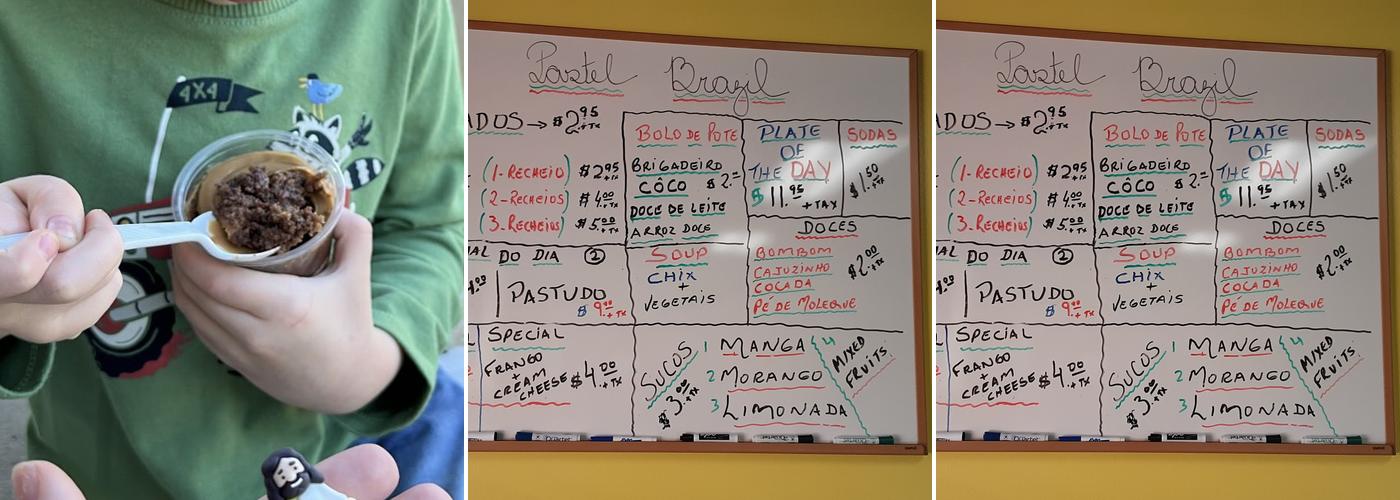 4X4
Pastel Brazil
ADOS → $2.95 + TX
(1-RECHEIO) $2.95 + TX
(2-RECHEIOS) $4.00 + TX
(3-RECHEIOS) $5.00 + TX
BOLO DE POTE
BRIGADEIRO
CÔCO $2.=
DOCE DE LEITE
ARROZ DOCE
PLATE
OF
THE DAY
$11.95 + TAX
SODAS
$1.50 + TX
AL DO DIA 2
PASTUDO
$9.00 + TX
SOUP
CHIX
+
VEGETAIS
DOCES
BOMBOM
CAJUZINHO
COCADA
PÉ DE MOLEQUE
$2.00 + TX
SPECIAL
FRANGO
+
CREAM
CHEESE $4.00 + TX
SUCOS
$3.00 + TX
1 MANGA
2 MORANGO
3 LIMONADA
4 MIXED
FRUITS
Pastel Brazil
ADOS → $2.95 + TX
(1-RECHEIO) $2.95 + TX
(2-RECHEIOS) $4.00 + TX
(3-RECHEIOS) $5.00 + TX
BOLO DE POTE
BRIGADEIRO
CÔCO $2.=
DOCE DE LEITE
ARROZ DOCE
PLATE
OF
THE DAY
$11.95 + TAX
SODAS
$1.50 + TX
AL DO DIA 2
PASTUDO
$9.00 + TX
SOUP
CHIX
+
VEGETAIS
DOCES
BOMBOM
CAJUZINHO
COCADA
PÉ DE MOLEQUE
$2.00 + TX
SPECIAL
FRANGO
+
CREAM
CHEESE $4.00 + TX
SUCOS
$3.00 + TX
1 MANGA
2 MORANGO
3 LIMONADA
4 MIXED
FRUITS